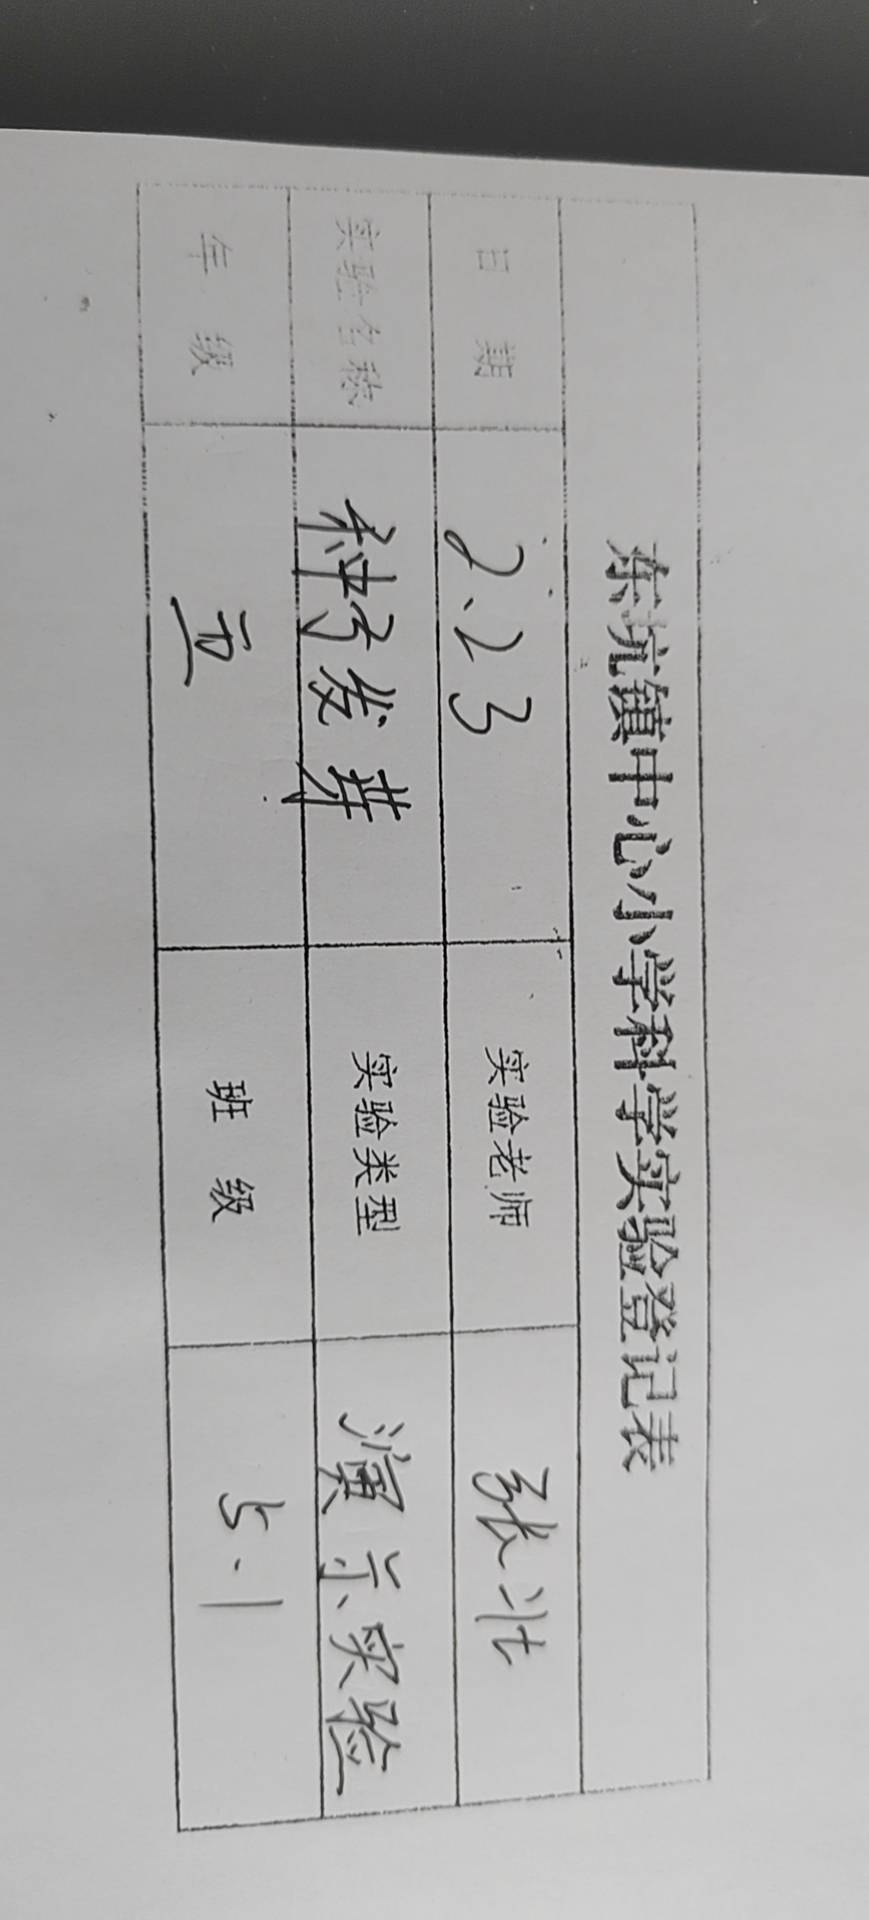 东坑镇中心小学科学实验登记表
日 期 2.23 实验老师 张壮
实验名称 种子发芽 实验类型 演示实验
年 级 五 班 级 5.1